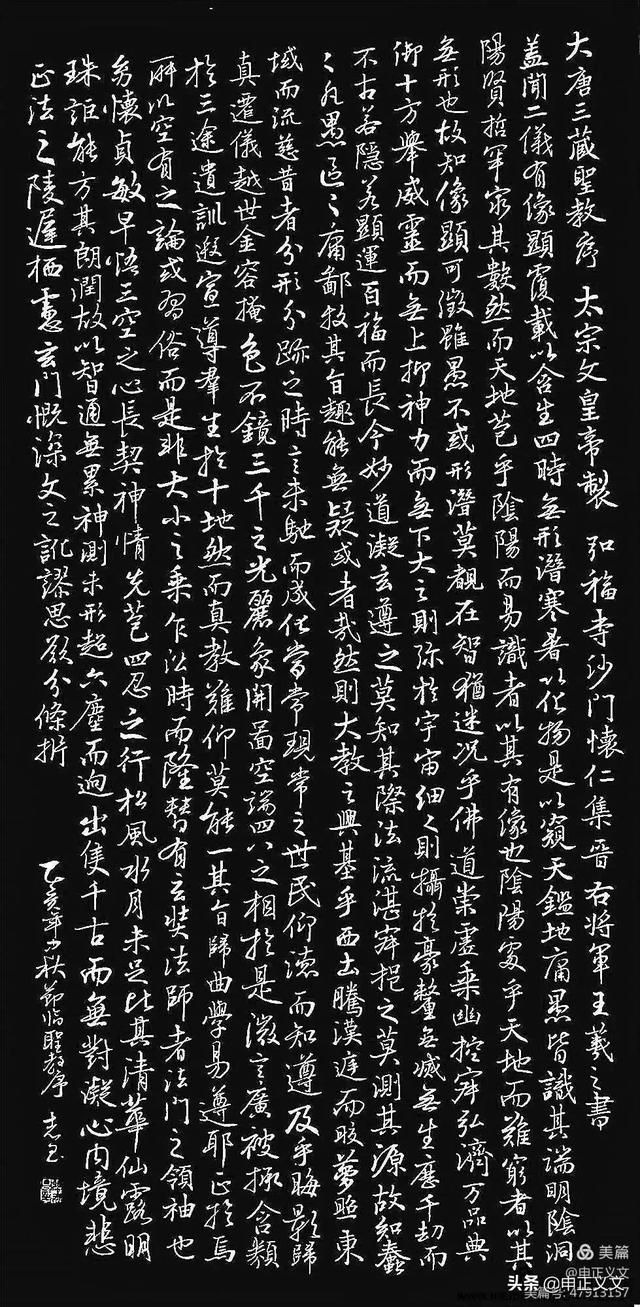 大唐三藏聖教序 太宗文皇帝製 弘福寺沙門懷仁集晉右將軍王羲之書
蓋聞二儀有像顯覆載以含生四時無形潛寒暑以化物是以窺天鑑地庸愚皆識其端明陰洞
陽賢哲罕窮其數然而天地苞乎陰陽而易識者以其有像也陰陽處乎天地而難窮者以其
無形也故知像顯可徵雖愚不或形潛莫覩在智猶迷況乎佛道崇虛乘幽控寂弘濟万品典
御十方舉威靈而無上抑神力而無下大之則弥於宇宙細之則攝於豪釐無滅無生歷千劫而
不古若隱若顯運百福而長今妙道凝玄遵之莫知其際法流湛寂挹之莫測其源故知蠢
々凡愚區々庸鄙投其旨趣能無疑或者哉然則大教之興基乎西土騰漢庭而皎夢照東
域而流慈昔者分形分跡之時言未馳而成化當常現常之世民仰德而知遵及乎晦影歸
真遷儀越世金容掩色不鏡三千之光麗象開圖空端四八之相於是微言廣被拯含類
於三途遺訓遐宣導羣生於十地然而真教難仰莫能一其旨歸曲學易遵耶正於焉
所以空有之論或習俗而是非大小之乘乍沿時而隆替有玄奘法師者法門之領袖也
幼懷貞敏早悟三空之心長契神情先苞四忍之行松風水月未足比其清華仙露明
珠詎能方其朗潤故以智通無累神測未形超六塵而迥出隻千古而無對凝心內境悲
正法之陵遲栖慮玄門慨深文之訛謬思欲分條析
乙亥年中秋節临聖教序 志玉
美篇
@申正义文
头条 @申正义文
美篇号:47913157